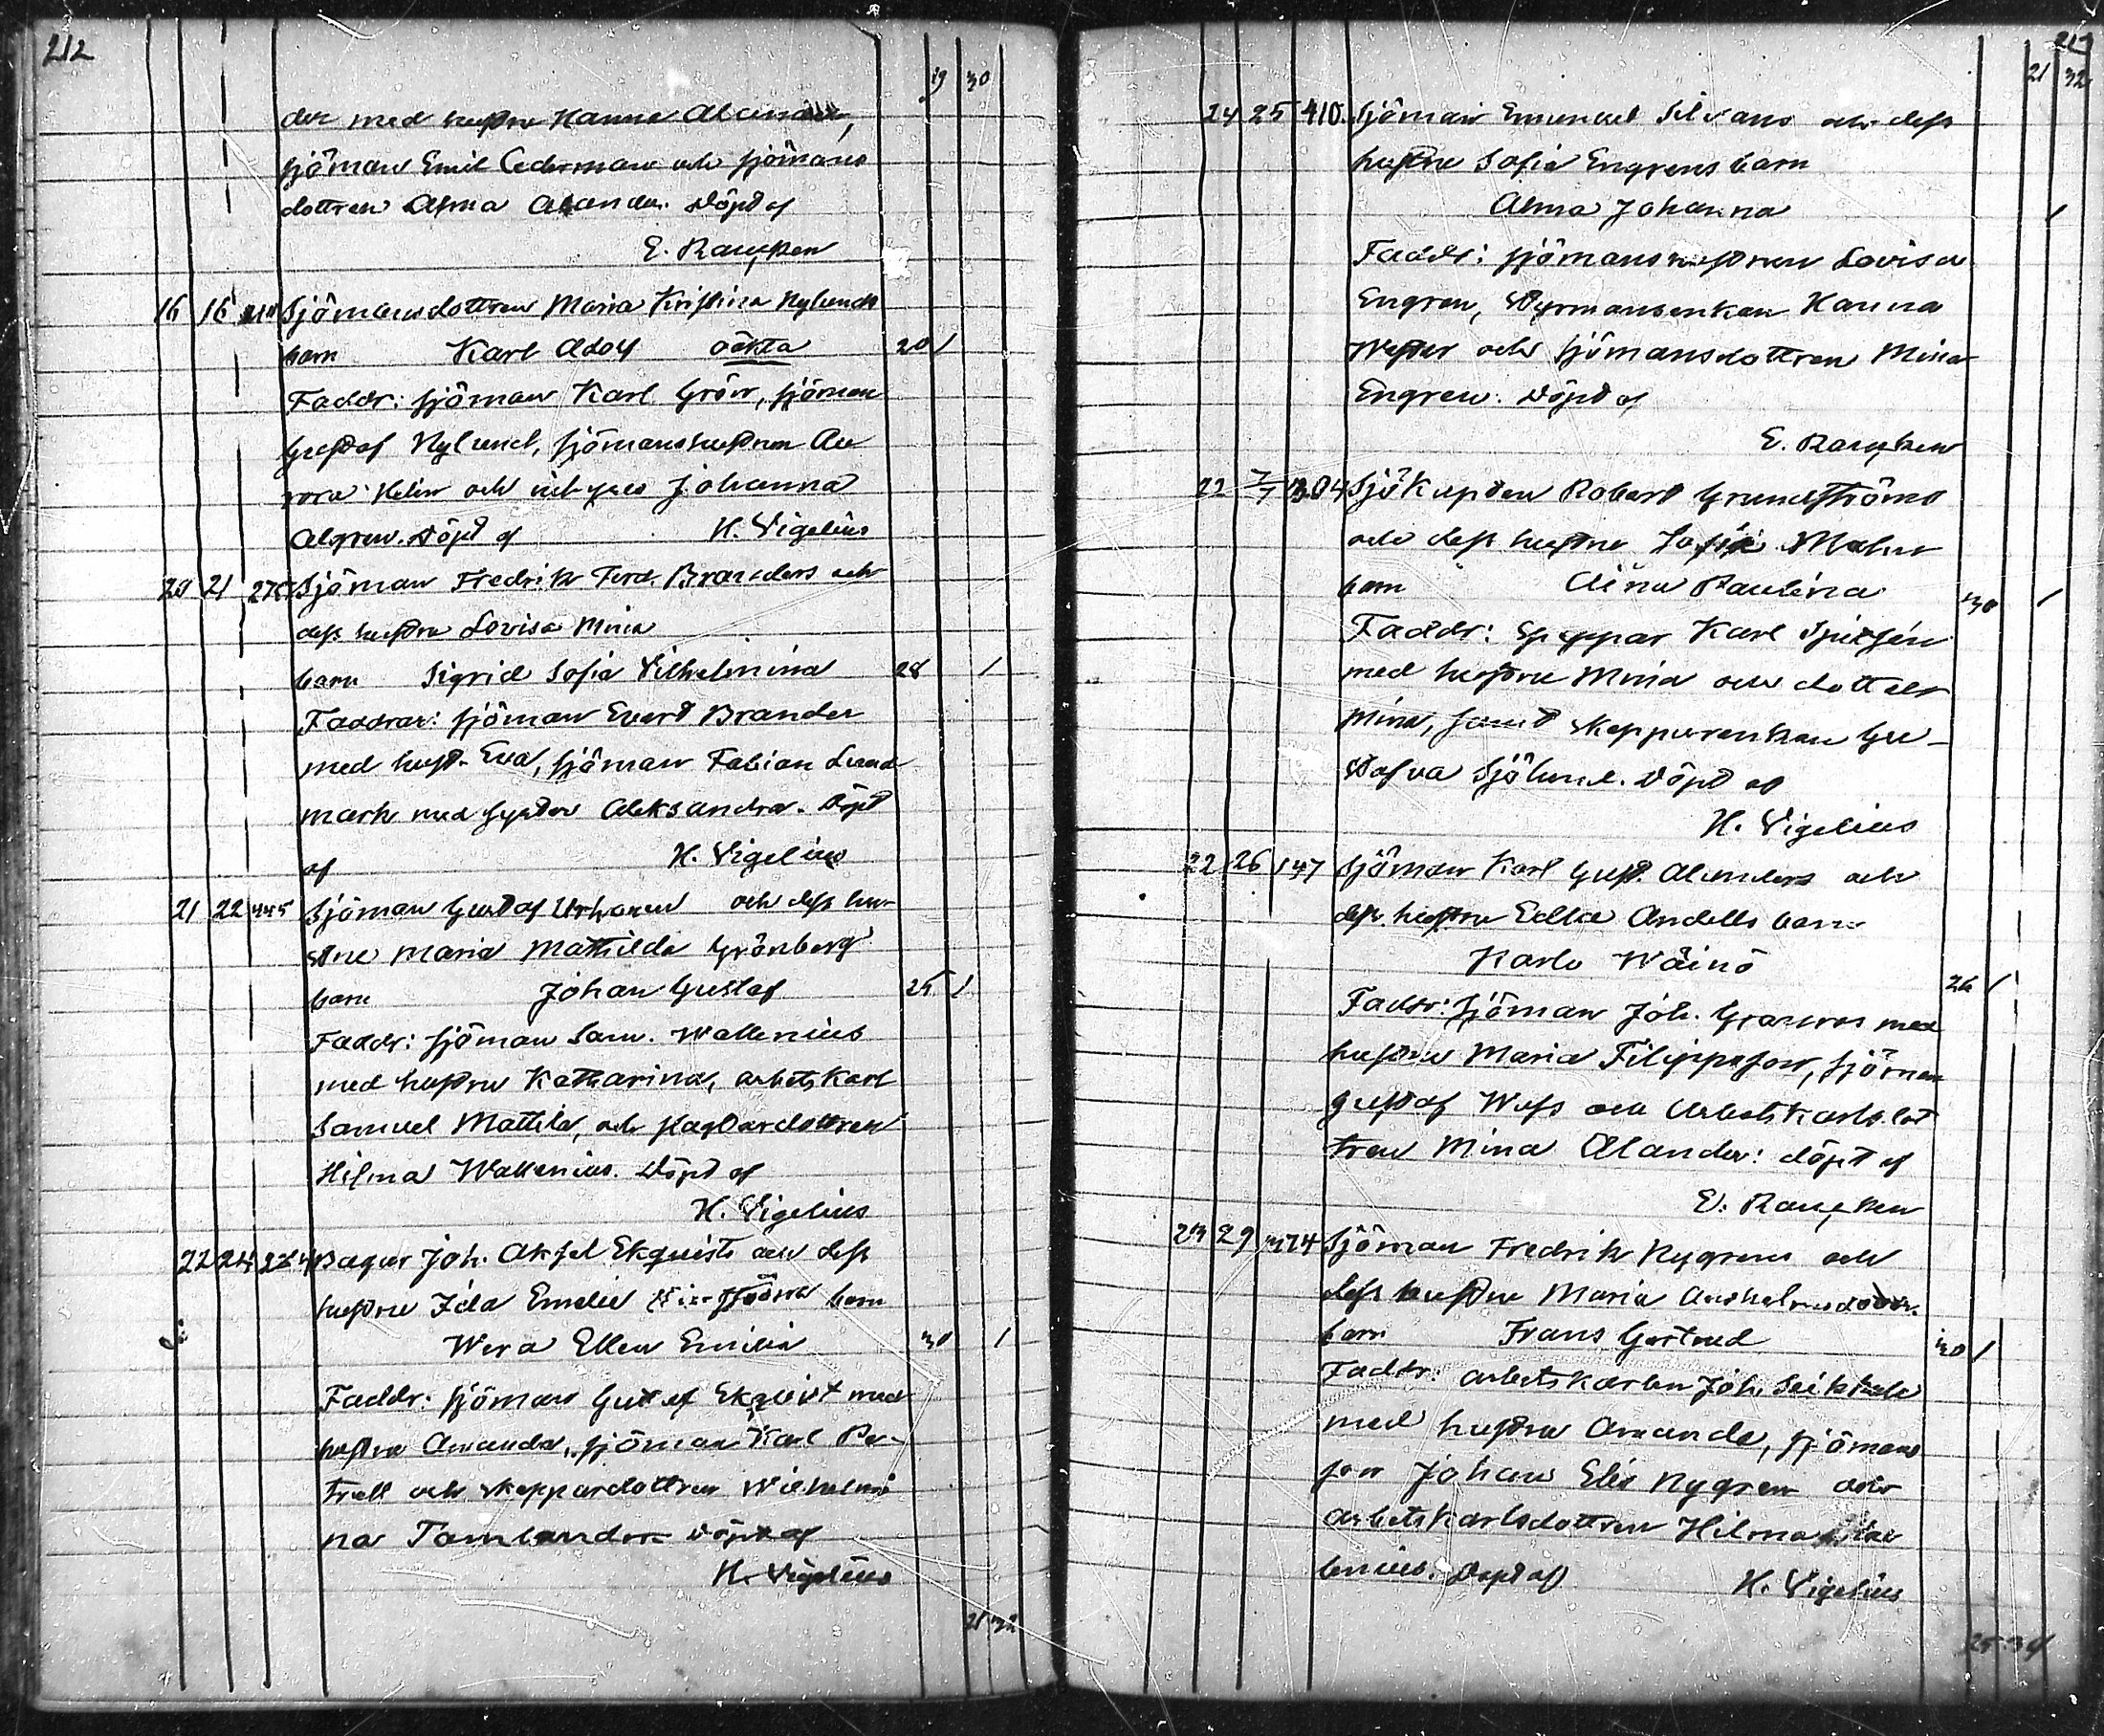 212
19 30
der med hustru Hanna Alander,
sjöman Emil Cederman och sjömans
dottren Alma Alander. Döpt af
E. Rancken
16 16 Sjömansdottren Maria Kristina Nylunds
barn Karl Adolf oäkta 20 1
Faddr: sjöman Karl Grön, sjöman
Gustaf Nylund, sjömanshustrun Au
rora Helin och Johanna
Algren. Döpt af H. Vigelius
20 21 Sjöman Fredrik Ferd. Branders och
dess hustru Lovisa Mina
barn Sigrid Sofia Vilhelmina 28 1
Faddrar: sjöman Evert Brander
med hust. Eva, sjöman Fabian Lund
mark med syster Aleksandra. Döpt
af H. Vigelius
21 22 445 Sjöman Gustaf Urhonen och dess hu-
stru Maria Mathilda Grönberg
barn Johan Gustaf 25 1
Faddr: sjöman Sam. Wallenius
med hustru Katharina, arbetskarl
Samuel Mattila, och slagtardottren
Hilma Wallenius. Döpt af
H. Vigelius
22 24 274 Bagar Joh. Aksel Ekqvists och dess
hustru Ida Emelie barn
Wera Ellen Emilia 30 1
Faddr: sjöman Gustaf Ekqvist med
hustru Amanda, sjöman Karl Pe-
trell och skeppardottren Wilhelmi
na Tamlander Döpt af
H. Vigelius
21 32
21 32
24 25 410 Sjöman Emanuel Silvans och dess
hustru Sofia Engrens barn
Alma Johanna 1
Faddr: sjömanshustrun Lovisa
Engren, Styrmansenkan Hanna
Wester och sjömansdottren Mina
Engren. Döpt af
E. Rancken
22 304 Sjökapten Robert Grundströms
och dess hustru Sofia Malm
barn Aina Paulina 30 1
Faddr: Skeppar Karl Spitsén
med hustru Mina och dotter
Mina, samt skepparenkan Gu-
stafva Sjölund. Döpt af
H. Vigelius
22 26 147 Sjöman Karl Gust. Alanders och
dess hustru Edla Andells barn
Karlo Wäinö 26 1
Faddr: Sjöman Joh. Granroos med
hustru Maria Filippsson, sjöman
Gustaf Wass och Arbetskarls dot
tren Mina Alander: döpt af
E. Rancken
23 29 374 Sjöman Fredrik Nygrens och
dess hustru Maria Anshelmsdotter.
barn Frans Gertrud 30 1
Faddr: arbetskarlen Joh.
med hustru Amanda, sjömans
son Johan Elis Nygren och
arbetskarlsdottren Hilma
lenius. Döpt af H. Vigelius
25 34